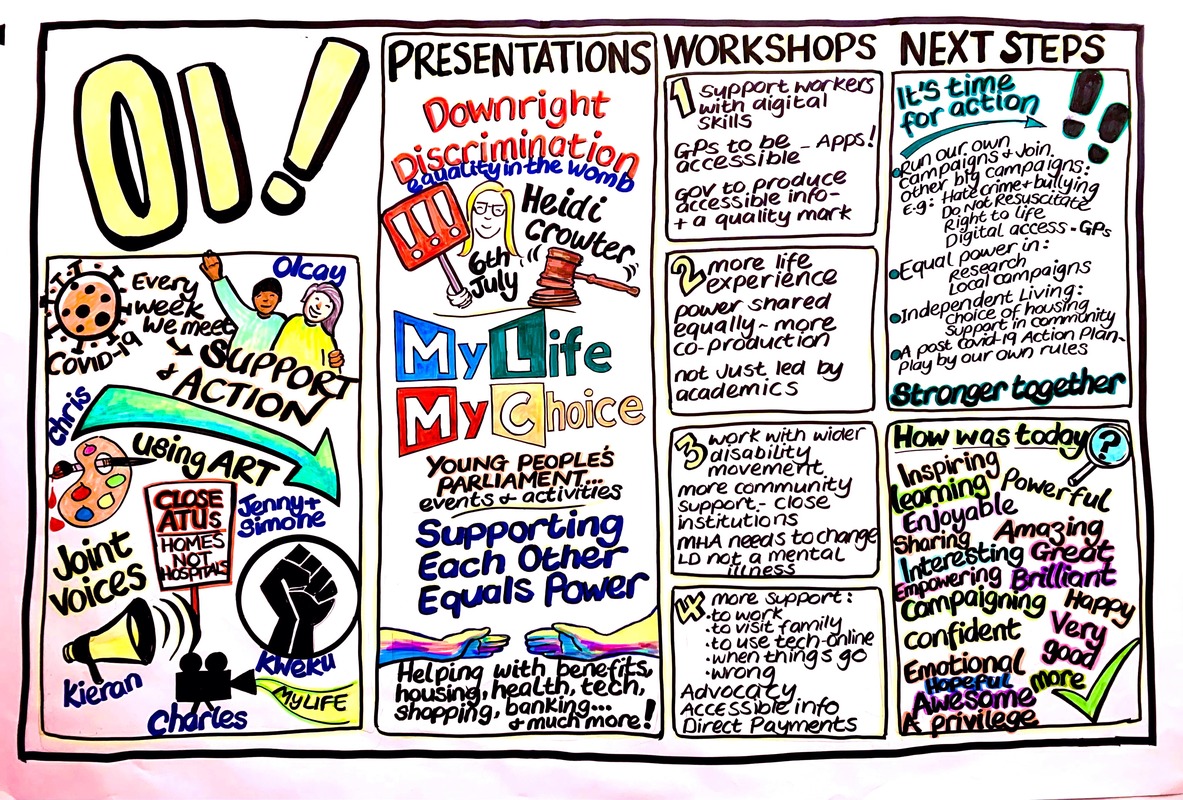 OI!
Olcay
Every
week
We meet
COVID-19
SUPPORT
& ACTION
Chris
using ART
CLOSE
ATUs
HOMES
NOT
HOSPITALS
Jenny +
Simone
Joint
Voices
Kieran
Kweku
MYLIFE
Charles
PRESENTATIONS
Downright
Discrimination
equality in the womb
!!!
Heidi
Crowter
6th
July
My Life
My Choice
YOUNG PEOPLE'S
PARLIAMENT...
events & activities
Supporting
Each Other
Equals Power
Helping with benefits,
housing, health, tech,
shopping, banking...
& much more!
WORKSHOPS
1 support workers
with digital
skills
GPs to be - Apps!
accessible
Gov to produce
accessible info-
+ a quality mark
2 more life
experience
power shared
equally - more
co-production
not just led by
academics
3 work with wider
disability
movement
more community
support - close
institutions
MHA needs to change
LD not a mental
illness
4 more support:
• to work
• to visit family
• to use tech-online
• when things go
• wrong
Advocacy
ACCESSible info
Direct Payments
NEXT STEPS
It's time
for action
• Run our own
campaigns & Join
other big campaigns:
E.g: Hate crime + bullying
Do Not Resuscitate
Right to life
Digital access - GPs
• Equal power in:
Research
Local campaigns
• Independent Living:
choice of housing
Support in community
• A post Covid-19 Action Plan-
play by our own rules
Stronger together
How was today?
Inspiring
learning
Powerful
Enjoyable
Sharing
Amazing
Interesting
Great
Empowering
Brilliant
campaigning
Happy
confident
Very
good
Emotional
Hopeful
more
Awesome
A privilege